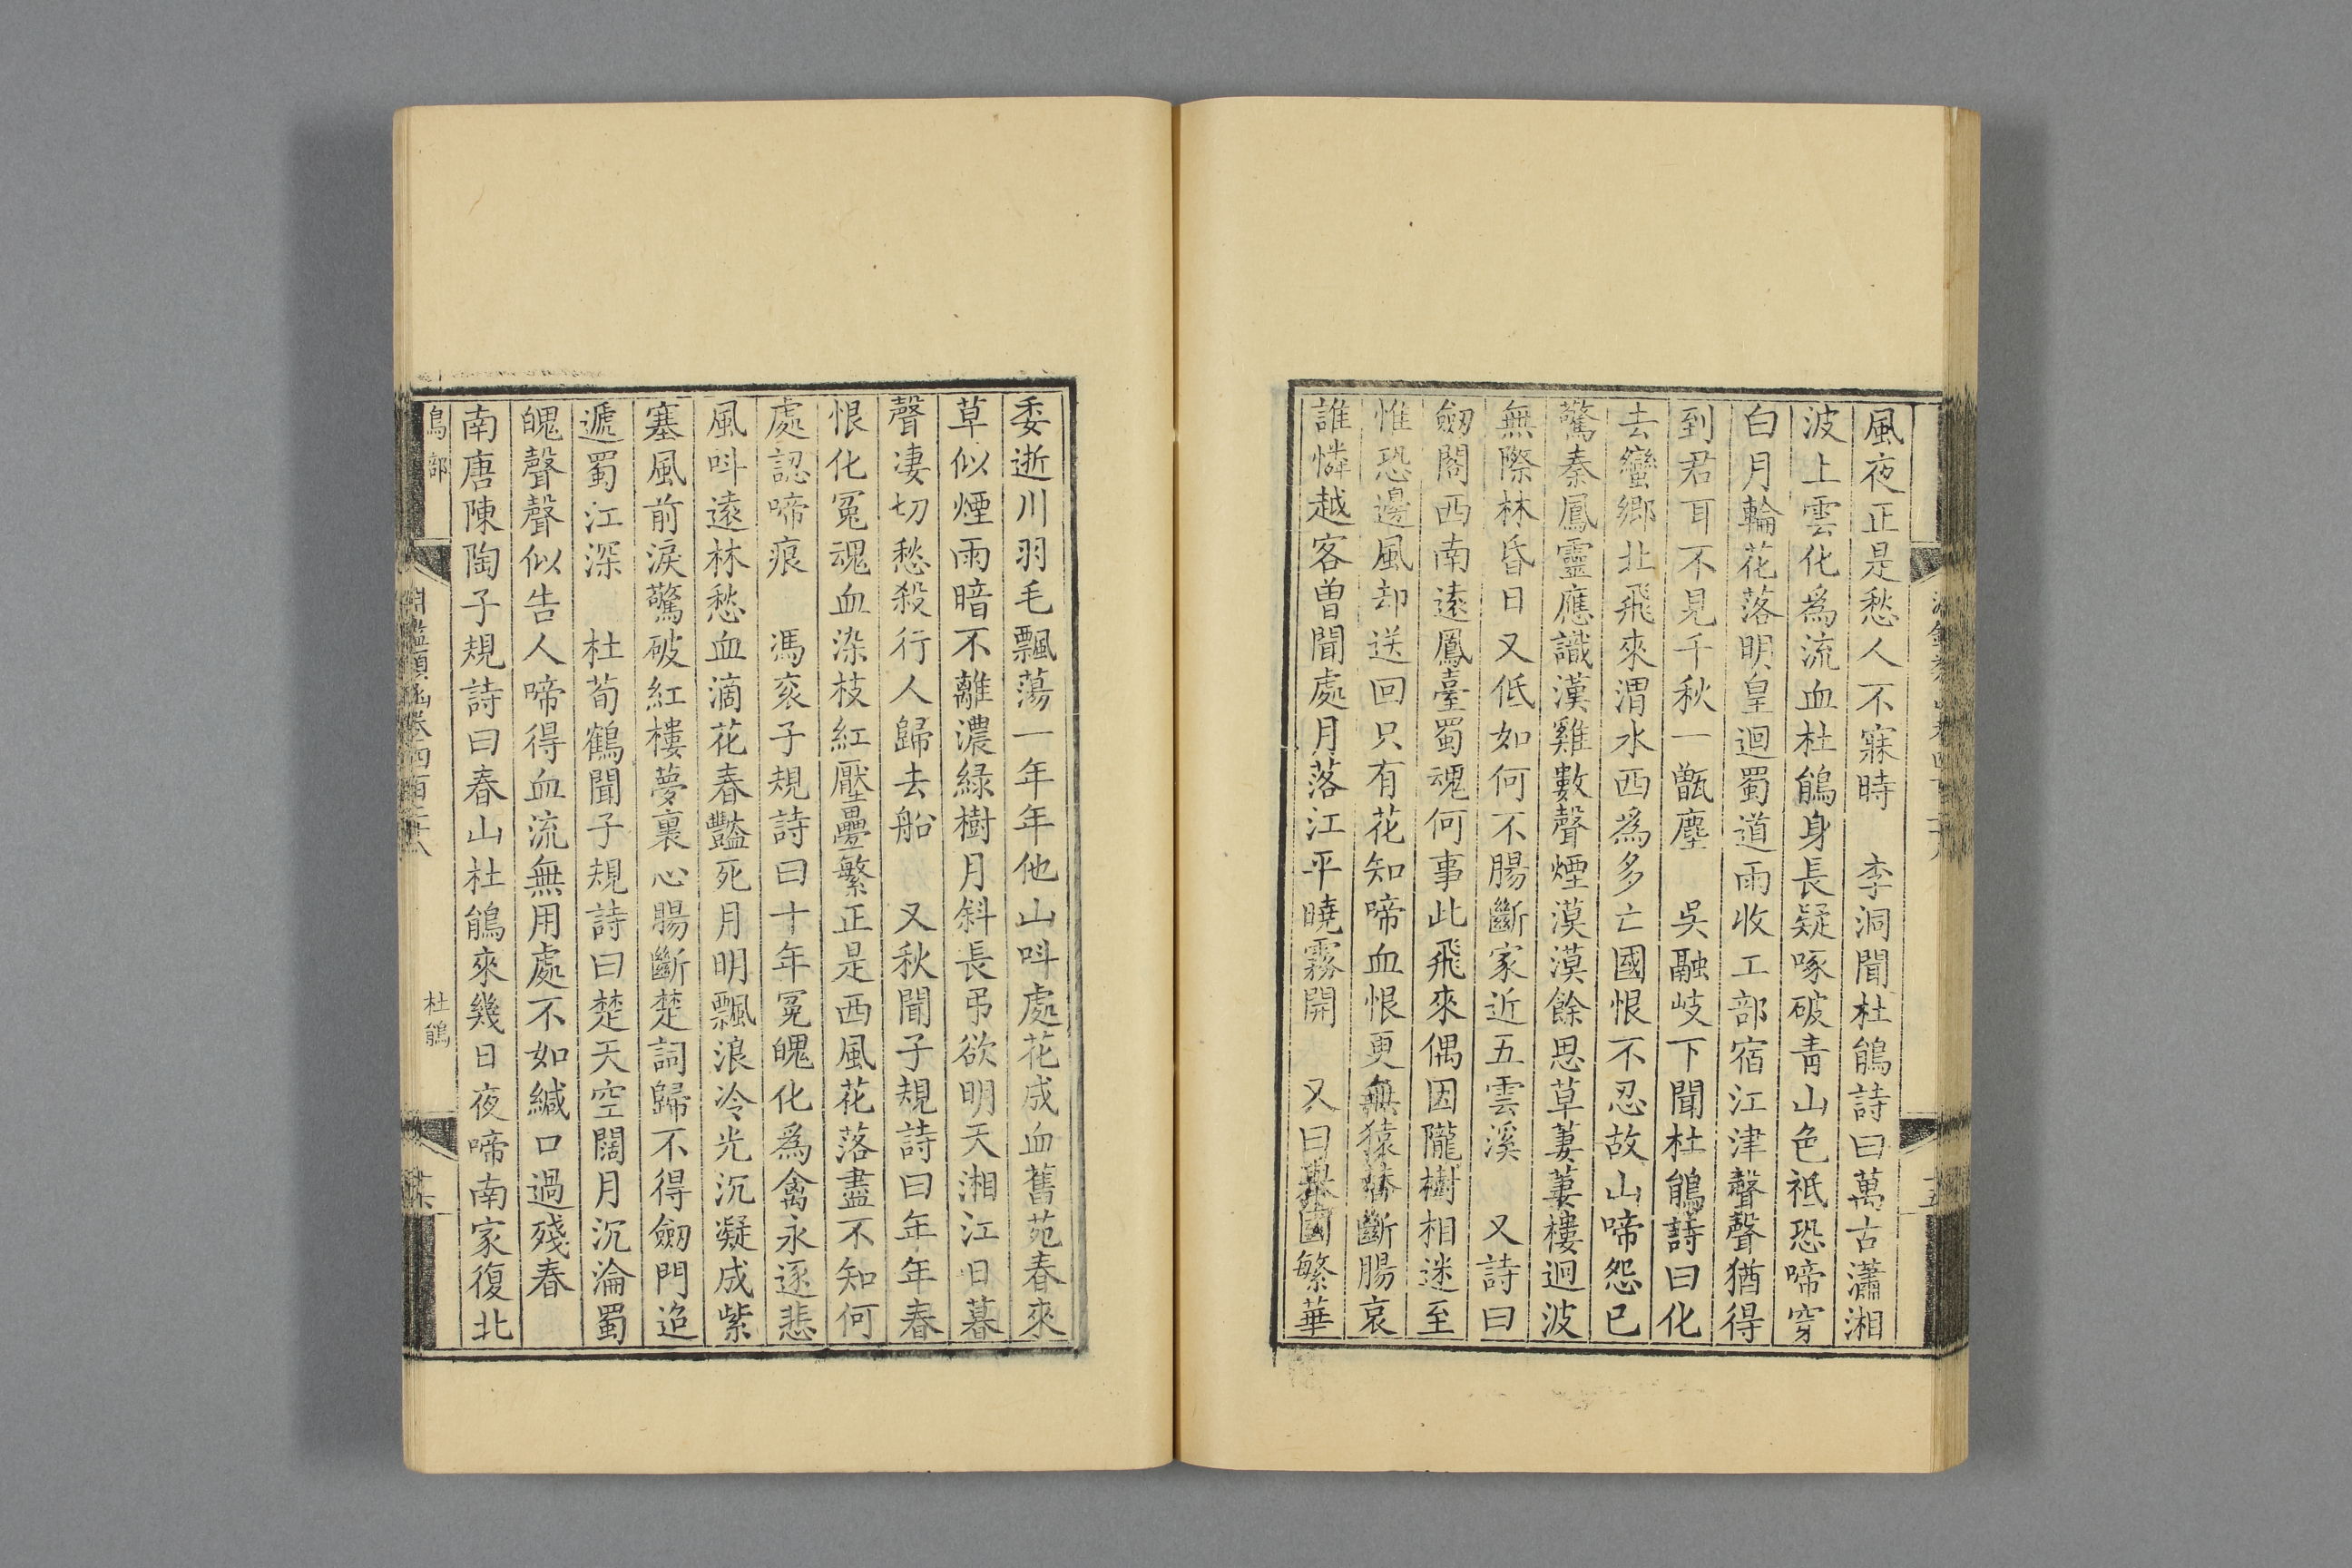 風夜正是愁人不寐時　李洞聞杜鵑詩曰萬古瀟湘
波上雲化爲流血杜鵑身長疑啄破青山色祇恐啼穿
白月輪花落明皇迴蜀道雨收工部宿江津聲聲猶得
到君耳不見千秋一甑塵　吳融岐下聞杜鵑詩曰化
去蠻鄉北飛來渭水西爲多亡國恨不忍故山啼怨已
驚秦鳳靈應識漢雞數聲煙漠漠餘思草萋萋樓迥波
無際林昏日又低如何不腸斷家近五雲溪　又詩曰
劒閣西南遠鳳臺蜀魂何事此飛來偶因隴樹相迷至
惟恐邊風却送回只有花知啼血恨更無猿替斷腸哀
誰憐越客曾聞處月落江平曉霧開　又曰舉國繁華
委逝川羽毛飄蕩一年年他山叫處花成血舊苑春來
草似煙雨暗不離濃綠樹月斜長弔欲明天湘江日暮
聲凄切愁殺行人歸去船　又秋聞子規詩曰年年春
恨化冤魂血染枝紅壓疊繁正是西風花落盡不知何
處認啼痕　馮衮子規詩曰十年冤魄化爲禽永逐悲
風叫遠林愁血滴花春豔死月明飄浪冷光沉凝成紫
塞風前淚驚破紅樓夢裏心腸斷楚詞歸不得劒門迢
遞蜀江深　杜荀鶴聞子規詩曰楚天空闊月沉淪蜀
魄聲聲似告人啼得血流無用處不如緘口過殘春
南唐陳陶子規詩曰春山杜鵑來幾日夜啼南家復北
鳥部
杜鵑